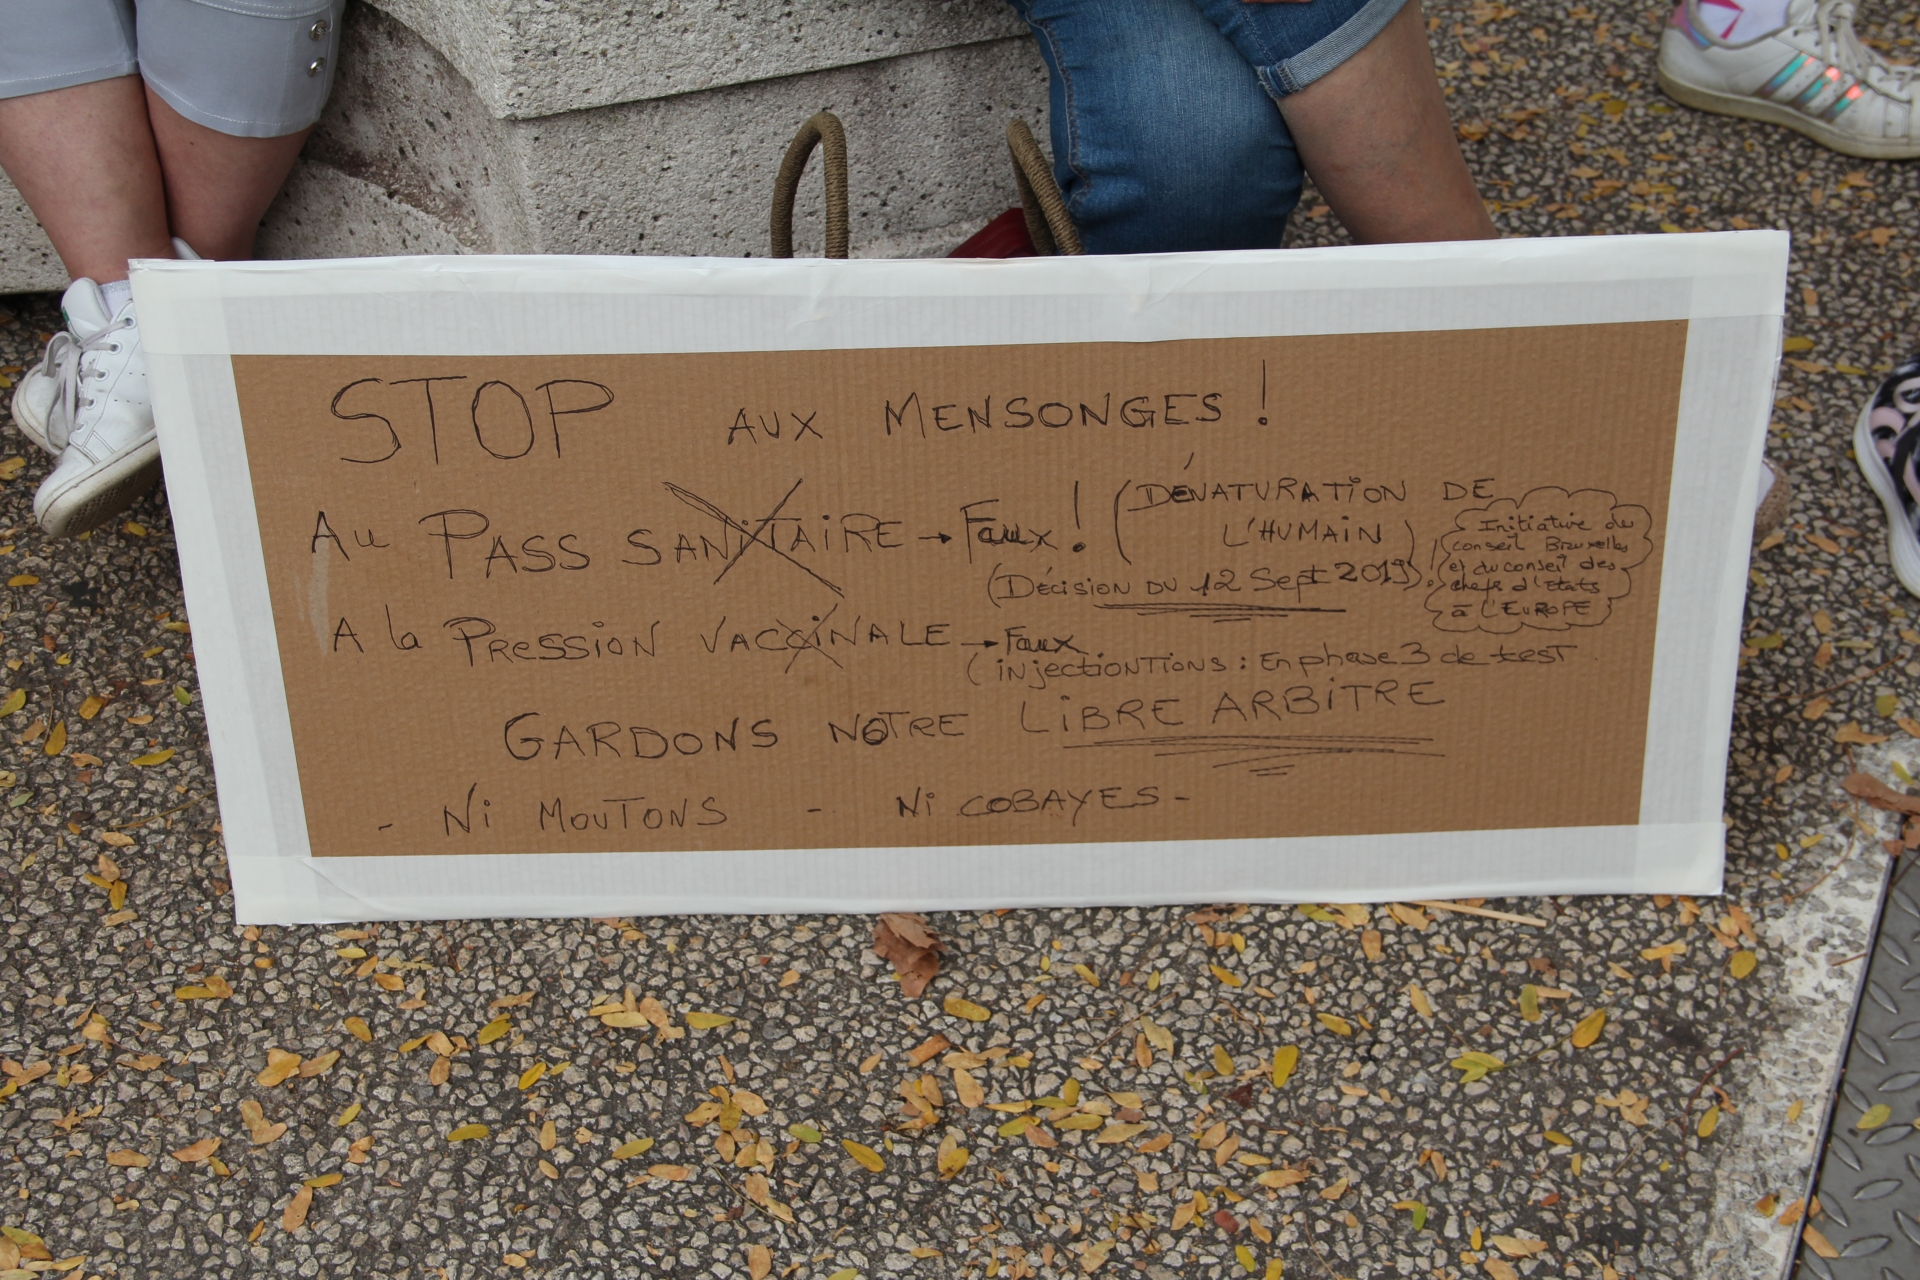 STOP AUX MENSONGES !
Au PASS SANiTAiRE → Faux ! (DÉNATURATiON DE
L'HUMAiN)
(DÉCiSiON DU 12 Sept 2019) !
Initiative du
conseil Bruxelles
et du conseil des
chefs d'Etats
à L'EUROPE
A la PRESSiON VACCiNALE → Faux
(iNjECTiONTiONS : En phase 3 de test
GARDONS NOTRE LiBRE ARBiTRE
- Ni MOUTONS - Ni COBAYES -